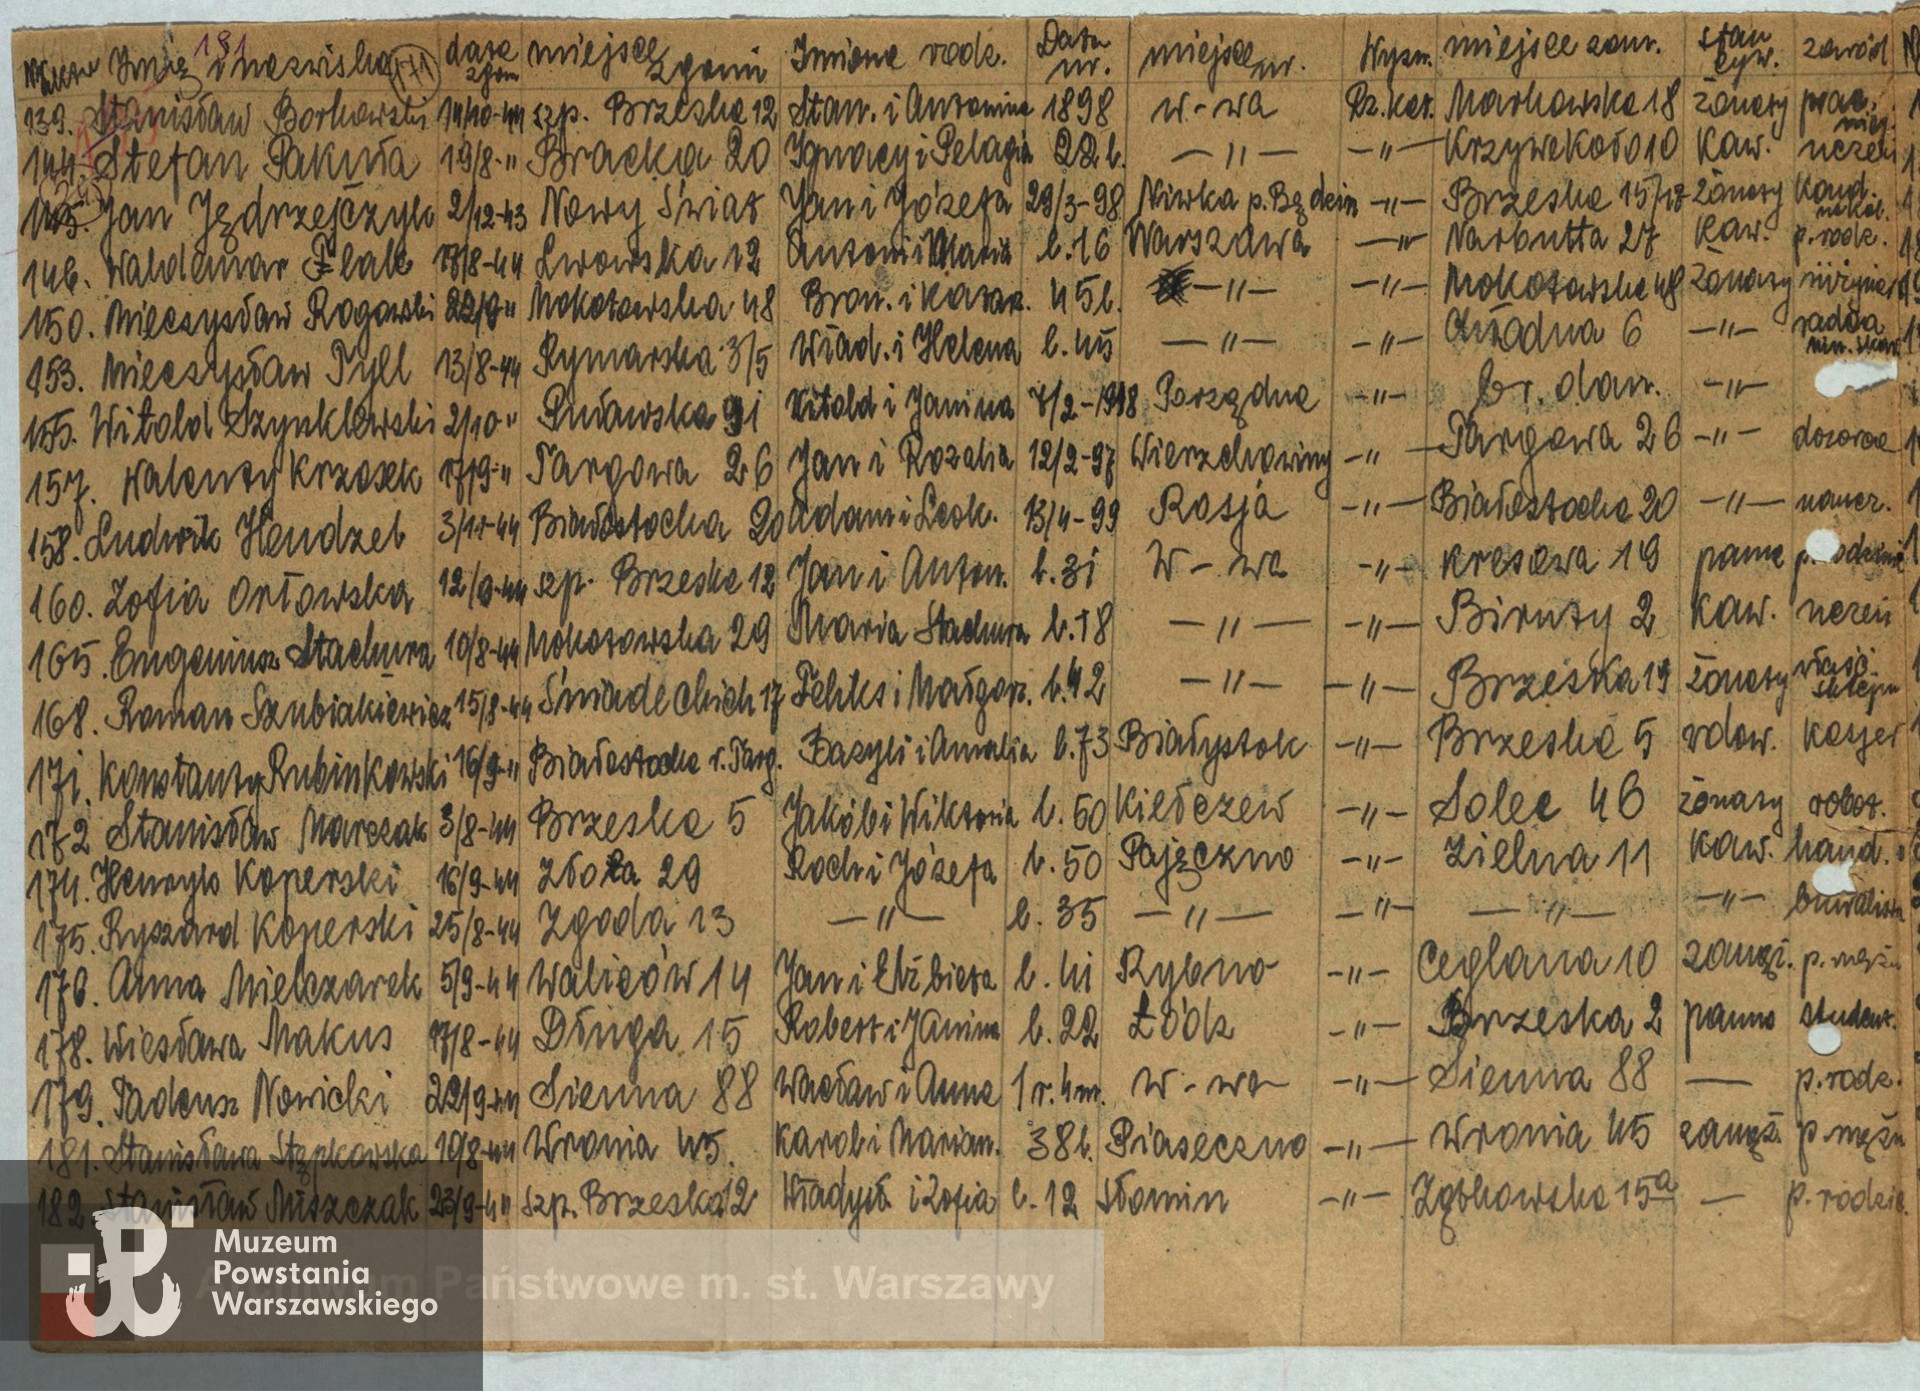 181
Imię i nazwisko 171 data zgonu miejsce zgonu Imiona rodz. Data ur. miejsce ur. Wyzn. miejsce zam. stan cyw. zawód
139. Stanisław Borkowski 14/10-44 szp. Brzeska 12 Stan. i Antonina 1898 W-wa Rz.kat. Markowska 18 żonaty prac. miej.
144. Stefan Pakuła 19/8-" Bracka 20 Ignacy i Pelagia 22 l. —"— —"— Krzywe Koło 10 Kaw. uczeń
145. Jan Jędrzejczyk 2/12-43 Nowy Świat Jan i Józefa 29/3-98 Niwka p. Będzin —"— Brzeska 15/17 żonaty
146. Waldemar Flak 17/8-44 Lwowska 12 Antoni i Maria l. 16 Warszawa —"— Narbutta 27 Kaw. p. rodz.
150. Mieczysław Rogowski Mokotowska 48 Bron. i Katarz. 45 l. —"— —"— Mokotowska 48 żonaty inżynier
153. Mieczysław Tyll 13/8-44 Rymarska 3/5 Wład. i Helena l. 45 —"— —"— Chłodna 6 —"— radca min. skar
155. Witold Szynklewski 2/10-" Puławska 91 Witold i Janina Porządne —"— br. dan. —"—
157. Walenty Krzosek 17/9-" Targowa 26 Jan i Rozalia 12/2-97 Wierzchowiny —"— Targowa 26 —"— dozorca
158. Ludwik Hendzel 3/11-44 Białostocka 20 Adam i Leok. 13/4-99 Rosja —"— Białostocka 20 —"— naucz.
160. Zofia Orłowska 12/9-44 szp. Brzeska 12 Jan i Anton. l. 31 W-wa —"— Kresowa 19 panna
165. Eugeniusz Stachura 10/8-44 Mokotowska 29 Maria Stachura l. 18 —"— —"— Biruty 2 Kaw. uczeń
168. Roman Szubiakiewicz 15/8-44 Śniadeckich 17 Feliks i Małgorz. l. 42 —"— —"— Brzeska 19 żonaty właśc. sklepu
171. Konstanty Rubinkowski 16/9-" Białostocka r. Targ. Bazyli i Amalia l. 73 Białystok —"— Brzeska 5 wdow. kasjer
172 Stanisław Marczak 3/8-44 Brzeska 5 Jakób i Wiktoria l. 50 Kiełczew —"— Solec 46 żonaty robot.
174. Henryk Koperski 16/9-44 Złota 29 Roch i Józefa l. 50 Pajęczno —"— Zielna 11 Kaw. hand.
175. Ryszard Koperski 25/8-44 Zgoda 13 —"— l. 35 —"— —"— —"— —"—
176. Anna Mielczarek 5/9-44 Walicòw 14 Jan i Elżbieta l. 41 Rybno —"— Ceglana 10 zamęż. p. mężu
178. Wiesława Makus 17/8-44 Długa 15 Robert i Janina l. 22 Łódz —"— Brzeska 2 panna student.
179. Tadeusz Nowicki 22/9-44 Sienna 88 Wacław i Anna 1 r. 4 m. W-wa —"— Sienna 88 — p. rodz.
181. Stanisława Stępkowska 19/8-44 Wronia 45. Karol i Marian. 38 l. Piaseczno —"— Wronia 45 zamęż. p. mężu
182. Stanisław Miszczak 23/9-44 Szp. Brzeska 12 Władysł. i Zofia l. 12 Słomin —"— Ząbkowska 15a — p. rodzic.
Muzeum
Powstania
Warszawskiego
Archiwum Państwowe m. st. Warszawy